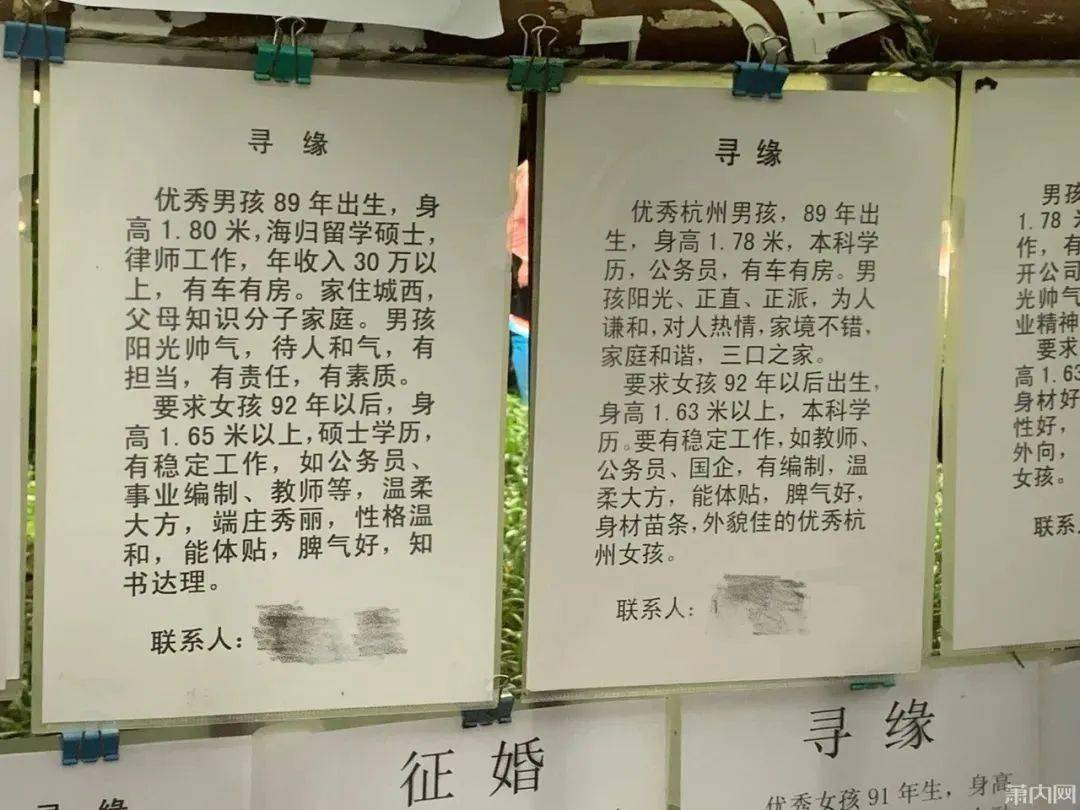 寻 缘
优秀男孩 89 年出生，身
高1.80 米,海归留学硕士,
律师工作，年收入 30 万以
上，有车有房。家住城西，
父母知识分子家庭。男孩
阳光帅气，待人和气，有
担当，有责任，有素质。
要求女孩 92 年以后，身
高1.65 米以上,硕士学历,
有稳定工作，如公务员、
事业编制、教师等，温柔
大方，端庄秀丽，性格温
和，能体贴，脾气好，知
书达理。
联系人:
寻 缘
优秀杭州男孩，89 年出
生，身高1.78 米，本科学
历，公务员，有车有房。男
孩阳光、正直、正派，为人
谦和,对人热情,家境不错,
家庭和谐，三口之家。
要求女孩 92 年以后出生,
身高1.63 米以上，本科学
历。要有稳定工作,如教师、
公务员、国企，有编制，温
柔大方，能体贴，脾气好，
身材苗条，外貌佳的优秀杭
州女孩。
联系人:
男孩
1.78
作，有
开公司
光帅气
业精神
要求
高1.63
身材好
性好，
外向，
女孩。
联系
寻 缘
征 婚
寻 缘
优秀女孩 91 年生，身高
萧内网